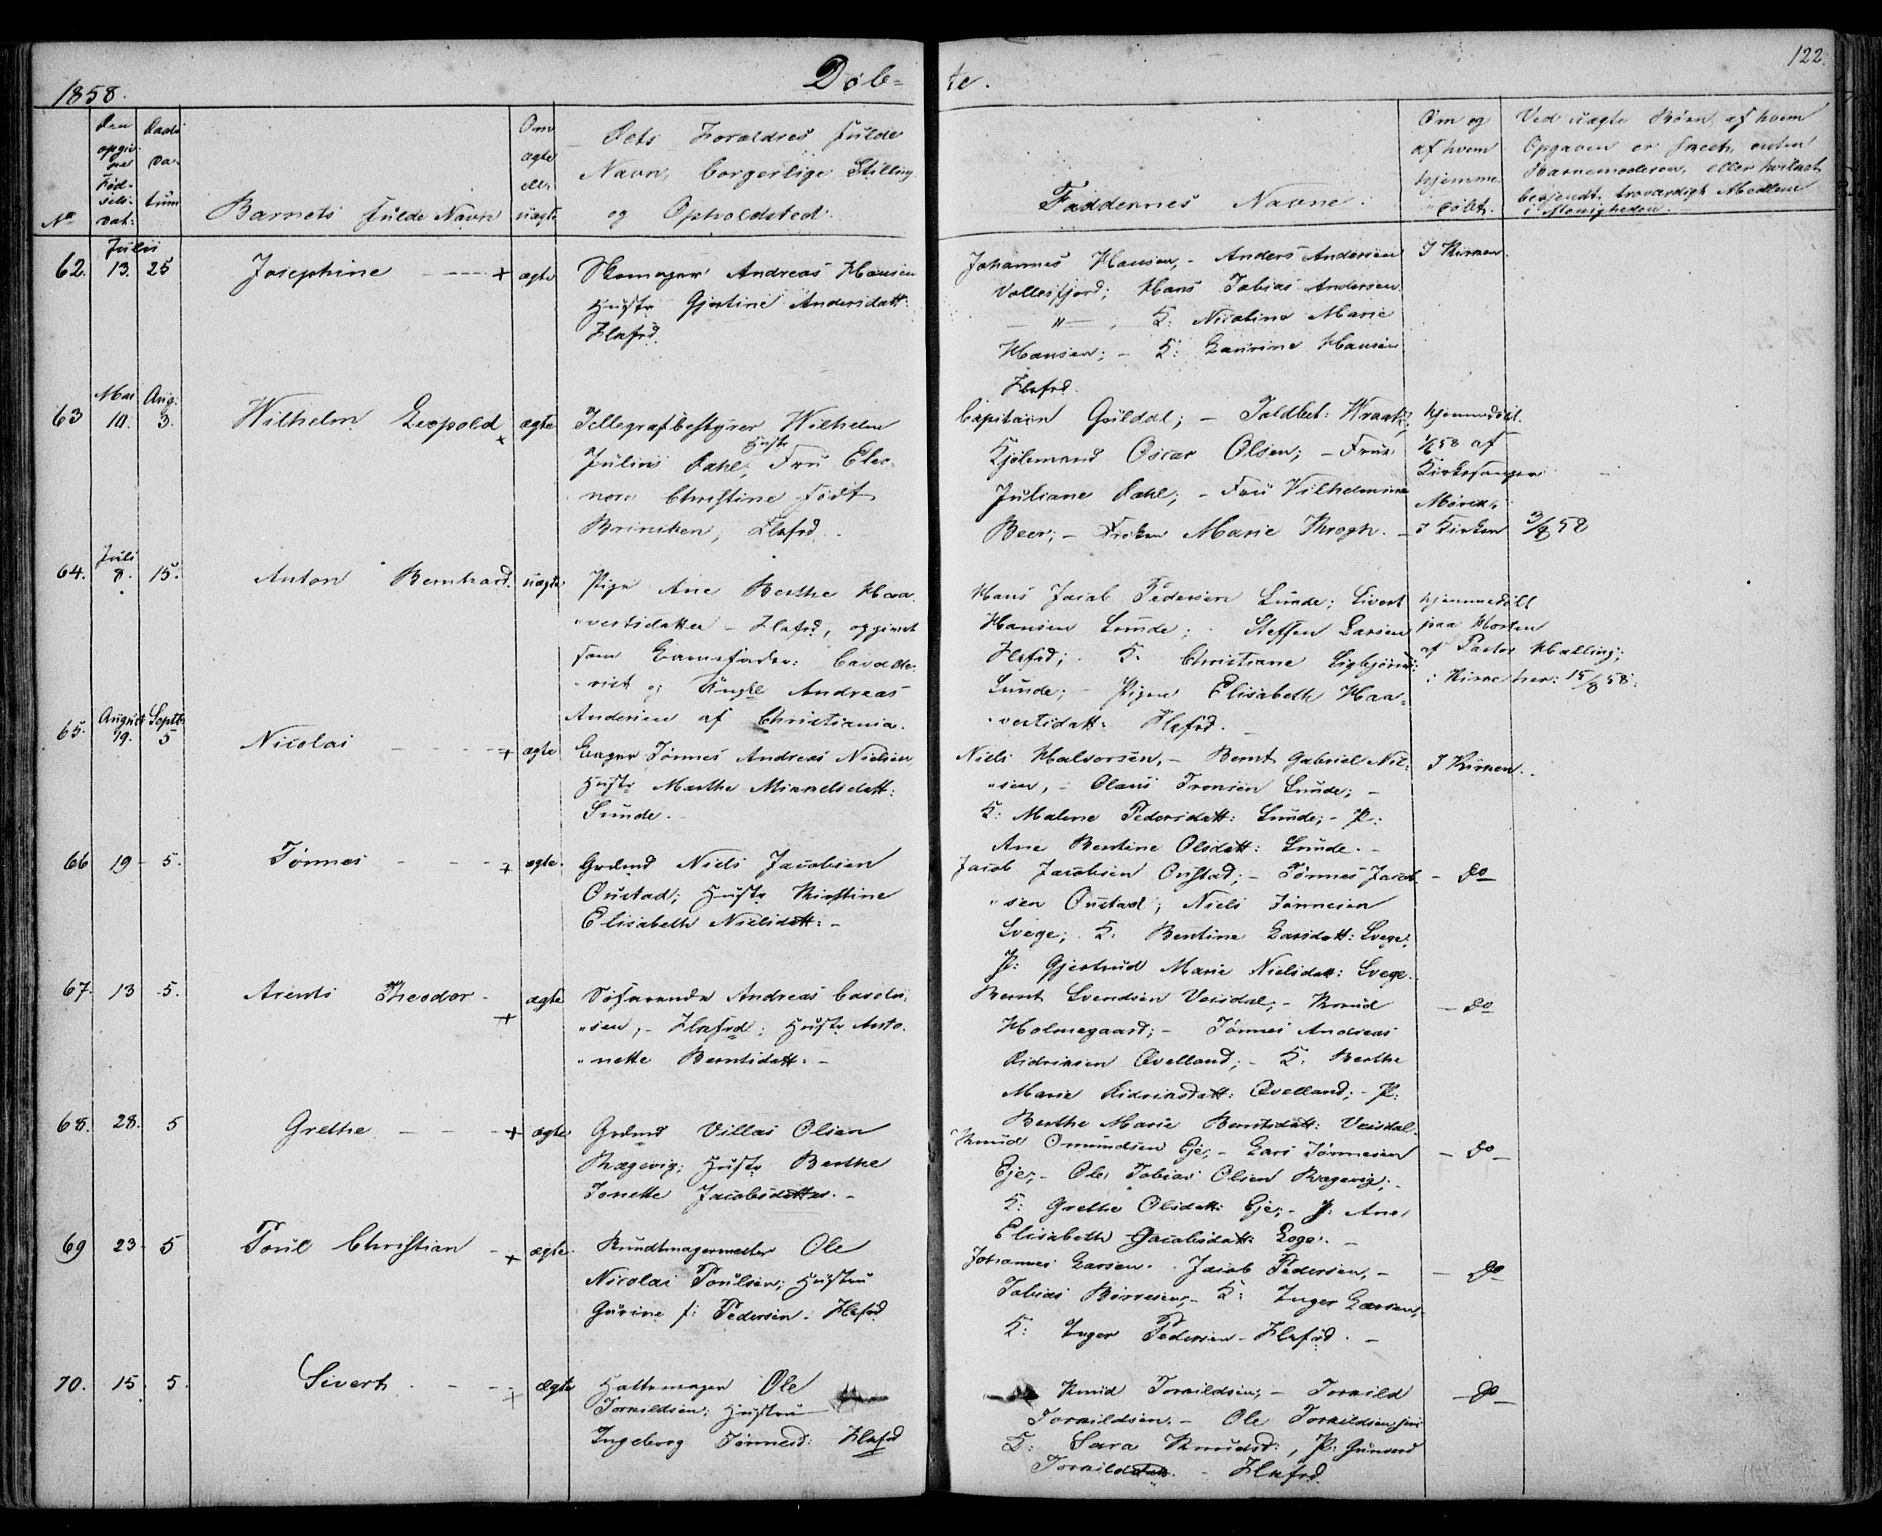 1858.
Døb=
te.
122.
Den opgivne Fødselsdat:
Daabs Datum
Om ægte ell. uægte
Dets Foreldres fulde
Navn, borgerlige Stilling
og Opholdsted.
Om og af hvem hjemmedøbt.
Ved uægte Børn, af hvem
Opgaven er skeet, enten
Barnemoderen, eller hvilket
No
Barnets fulde Navn
Faddernes Navne:
i Menigheden.
Julii
62. 13. 25 Josephine - - - - + ægte
Skomager Andreas Hansen
Hustr Gjertine Andersdatt:
Flafrd.
Johannes Hansen, - Anders Andersen
Vollesfjord; Hans Tobias Andersen
— " — , K: Nicoline Marie
Hansen; - K: Laurine Hansen
Flafrd.
I Kirken.
Mai Aug.
63 10. 3. Wilhelm Leopold + ægte
Tellegrafbestyrer Wilhelm
Julius Dahl; Hustr Fru Eleo-
nora Christine født
Brincken, Flafrd.
Capitain Güldal; - Toldbet:
Kjøbmand Oscar Olsen; - Frue
Juliane Dahl; - Fru Vilhelmine
Beer; - Frøken Marie Krogh. -
hjemmedøbt
58 af
Kirkesanger
I Kirken 3/8 58
Juli
64. 8. 15. Anton Bernhard. uægte
Pige Ane Berthe Haa-
"vorsdatter - Flafrd, opgivet
som Barnefader:
og Ungkl Andreas
Andersen af Christiania.
Hans Jacob Pedersen Lunde; Sivert
Hansen Lunde; - Steffen Larsen
Flafrd; - K: Christiane
Lunde; - Pigen Elisabeth Haa-
"vorsdatt: Flafrd.
hjemmedøbt
paa
af Pastor Halling;
i Kirken her: 15/8 58.
August Septb:
65. 19. 5 Nicolai - - - - + ægte
Tønnes Andreas Nielsen
Hustr Marthe Mikkelsdatt:
Lunde.
Niels Halvorsen, - Bernt Gabriel Niel-
"sen, - Olaus Tronsen Lunde; -
K: Malene Pedersdatt: Lunde; - P:
Ane Bentine Olsdatt: Lunde. -
I Kirken.
66 19 - 5. Tønnes - - - + ægte.
Grdmd Niels Jacobsen
Oustad; Hustr Kirstine
Elisabeth Nielsdatt: -
Jacob Jacobsen Oustad; - Tønnes Jacob-
"sen Oustad; Niels Tønnesen
Svege; K: Bentine Larsdatt: Svege;
P: Gjertrud Marie Nielsdatt: Svege.
- do
67. 13 5. Arents Theodor - + ægte
Søfarende Andreas
"sen, - Flafrd; Hustr Anto-
"nette Berntsdatt: -
Bernt Svendsen Veisdal; - Knud
Holmegaard; - Tønnes Andreas
Didriksen Øvelland; - K: Berthe
Marie Didriksdatt: Øvelland; - P:
Berthe Marie Berntsdatt: Veisdal.
- do
68. 28. 5 Grethe - - - + ægte
Grdmd Villas Olsen
Rægevig; Hustr Berthe
Tonette Jacobsdatter. -
Knud Omundsen Eje; - Lars Tønnesen
Eje; - Ole Tobias Olsen Rægevig; -
K: Grethe Olsdatt: Eje; - P: Ane
Elisabeth Jacobsdatt: Loge. -
- do -
69 23 - 5 Poul Christian - + ægte.
Bundtmagermester Ole
Nicolai Poulsen; Hustru
Gurine f: Pedersen. Flafrd
Johannes Larsen. Jacob Pedersen, -
Tobias Børresen; - K: Inger Larsen,
K: Inger Pedersen - Flafrd. -
- do
70. 15. 5. Sivert - - - + ægte
Hattemager Ole
Torkildsen; Hustru
Ingeborg Tønnesd: Flafrd
Knud Torkildsen; - Torkild
Torkildsen. - Ole Torkildsen
K: Sara Knudsd:, P: Gunvord
Torkildsdatt. - Flafrd.
- do -